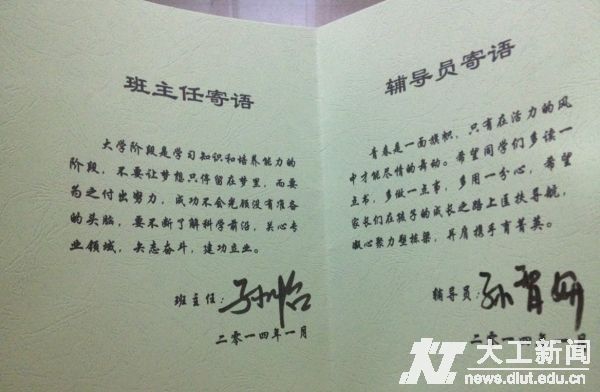 班主任寄语
大学阶段是学习知识和培养能力的
阶段，不要让梦想只停留在梦里，而要
为之付出努力，成功不会光顾没有准备
的头脑，要不断了解科学前沿，关心专
业领域，矢志奋斗，建功立业。
班主任：
二零一四年一月
辅导员寄语
青春是一面旗帜，只有在活力的风
中才能尽情的舞动。希望同学们多读一
点书，多做一点事，多用一分心，希望
家长们在孩子的成长之路上匡扶导航，
凝心聚力塑栋梁，并肩携手育菁英。
辅导员：
二零一四年一月
大工新闻
news.dlut.edu.cn